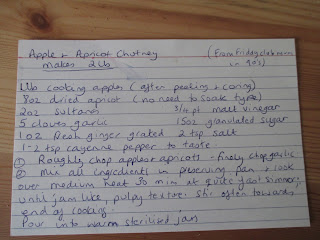 Apple + Apricot Chutney (From Friday club mum
Makes 2lb in 90's)
1½lb cooking apples (after peeling + coring)
8oz dried apricot (no need to soak type)
2oz sultanas 3/4 pt malt vinegar
5 cloves garlic 15oz granulated sugar
1oz fresh ginger grated 2 tsp salt
1-2 tsp cayenne pepper to taste.
① Roughly chop apples or apricots - finely chop garlic
② Mix all ingredients in preserving pan + cook
over medium heat 30 min at quite fast simmer,
until jam like, pulpy texture. Stir often towards
end of cooking.
Pour into warm sterilised jars